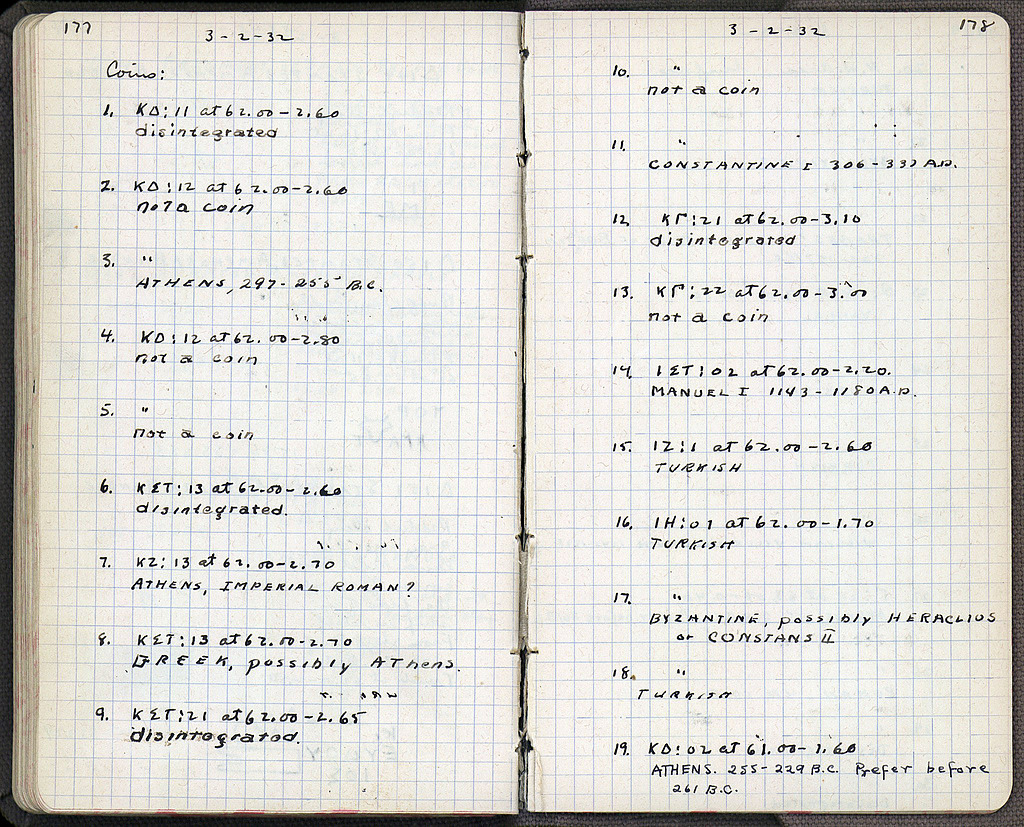 177
3-2-32
Coins:
1. ΚΔ:11 at 62.00-2.60
disintegrated
2. ΚΔ:12 at 62.00-2.60
not a coin
3. "
ATHENS, 297-255 B.C.
4. ΚΔ:12 at 62.00-2.80
not a coin
5. "
not a coin
6. ΚΣΤ:13 at 62.00-2.60
disintegrated.
7. ΚΖ:13 at 62.00-2.70
ATHENS, IMPERIAL ROMAN?
8. ΚΣΤ:13 at 62.00-2.70
GREEK, possibly AThens.
9. ΚΣΤ:21 at 62.00-2.65
disintegrated.
178
3-2-32
10. "
not a coin
11. "
CONSTANTINE I 306-337 A.D.
12. ΚΓ:21 at 62.00-3.10
disintegrated
13. ΚΓ:22 at 62.00-3.00
not a coin
14. ΙΣΤ:02 at 62.00-2.20.
MANUEL I 1143-1180 A.D.
15. ΙΖ:1 at 62.00-2.60
TURKISH
16. ΙΗ:01 at 62.00-1.70
TURKISH
17. "
BYZANTINE, possibly HERACLIUS
or CONSTANS II
18. "
TURKISH
19. ΚΔ:02 at 61.00-1.60
ATHENS. 255-229 B.C. Prefer before
261 B.C.